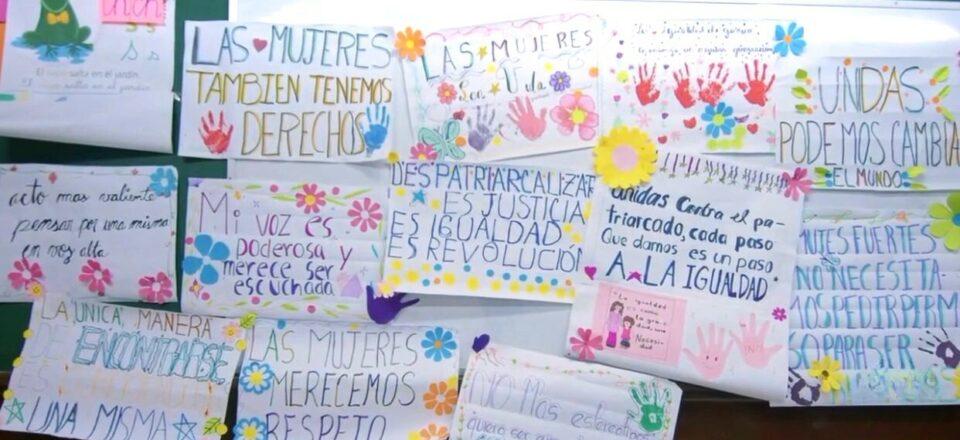 ch ch
S s
S s
El sapo salta en el jardin.
El sapo salta en el jardin.
LAS MUJERES
TAMBIEN TENEMOS
DERECHOS
LAS MUJERES
Son Vida
UNIDAS
PODEMOS CAMBIA
EL MUNDO
acto mas valiente
pensar por una misma
en vos alta
Mi voz es
poderosa y
merece ser
escuchada
DESPATRIARCALIZAR
ES JUSTICIA
ES IGUALDAD
ES REVOLUCIÓN
unidas contra el pa-
triarcado, cada paso
Que damos es un paso
A LA IGUALDAD
"La igualdad
es como
la gra
Necesi
dad
FUERTES
NO NECESITA-
MOS PEDIR PERM
SO PARA SER
LA UNICA MANERA
DE ENCONTRARSE
ES
UNA MISMA
LAS MUJERES
MERECEMOS
RESPETO
NO Mas estereotipos
quiero ser